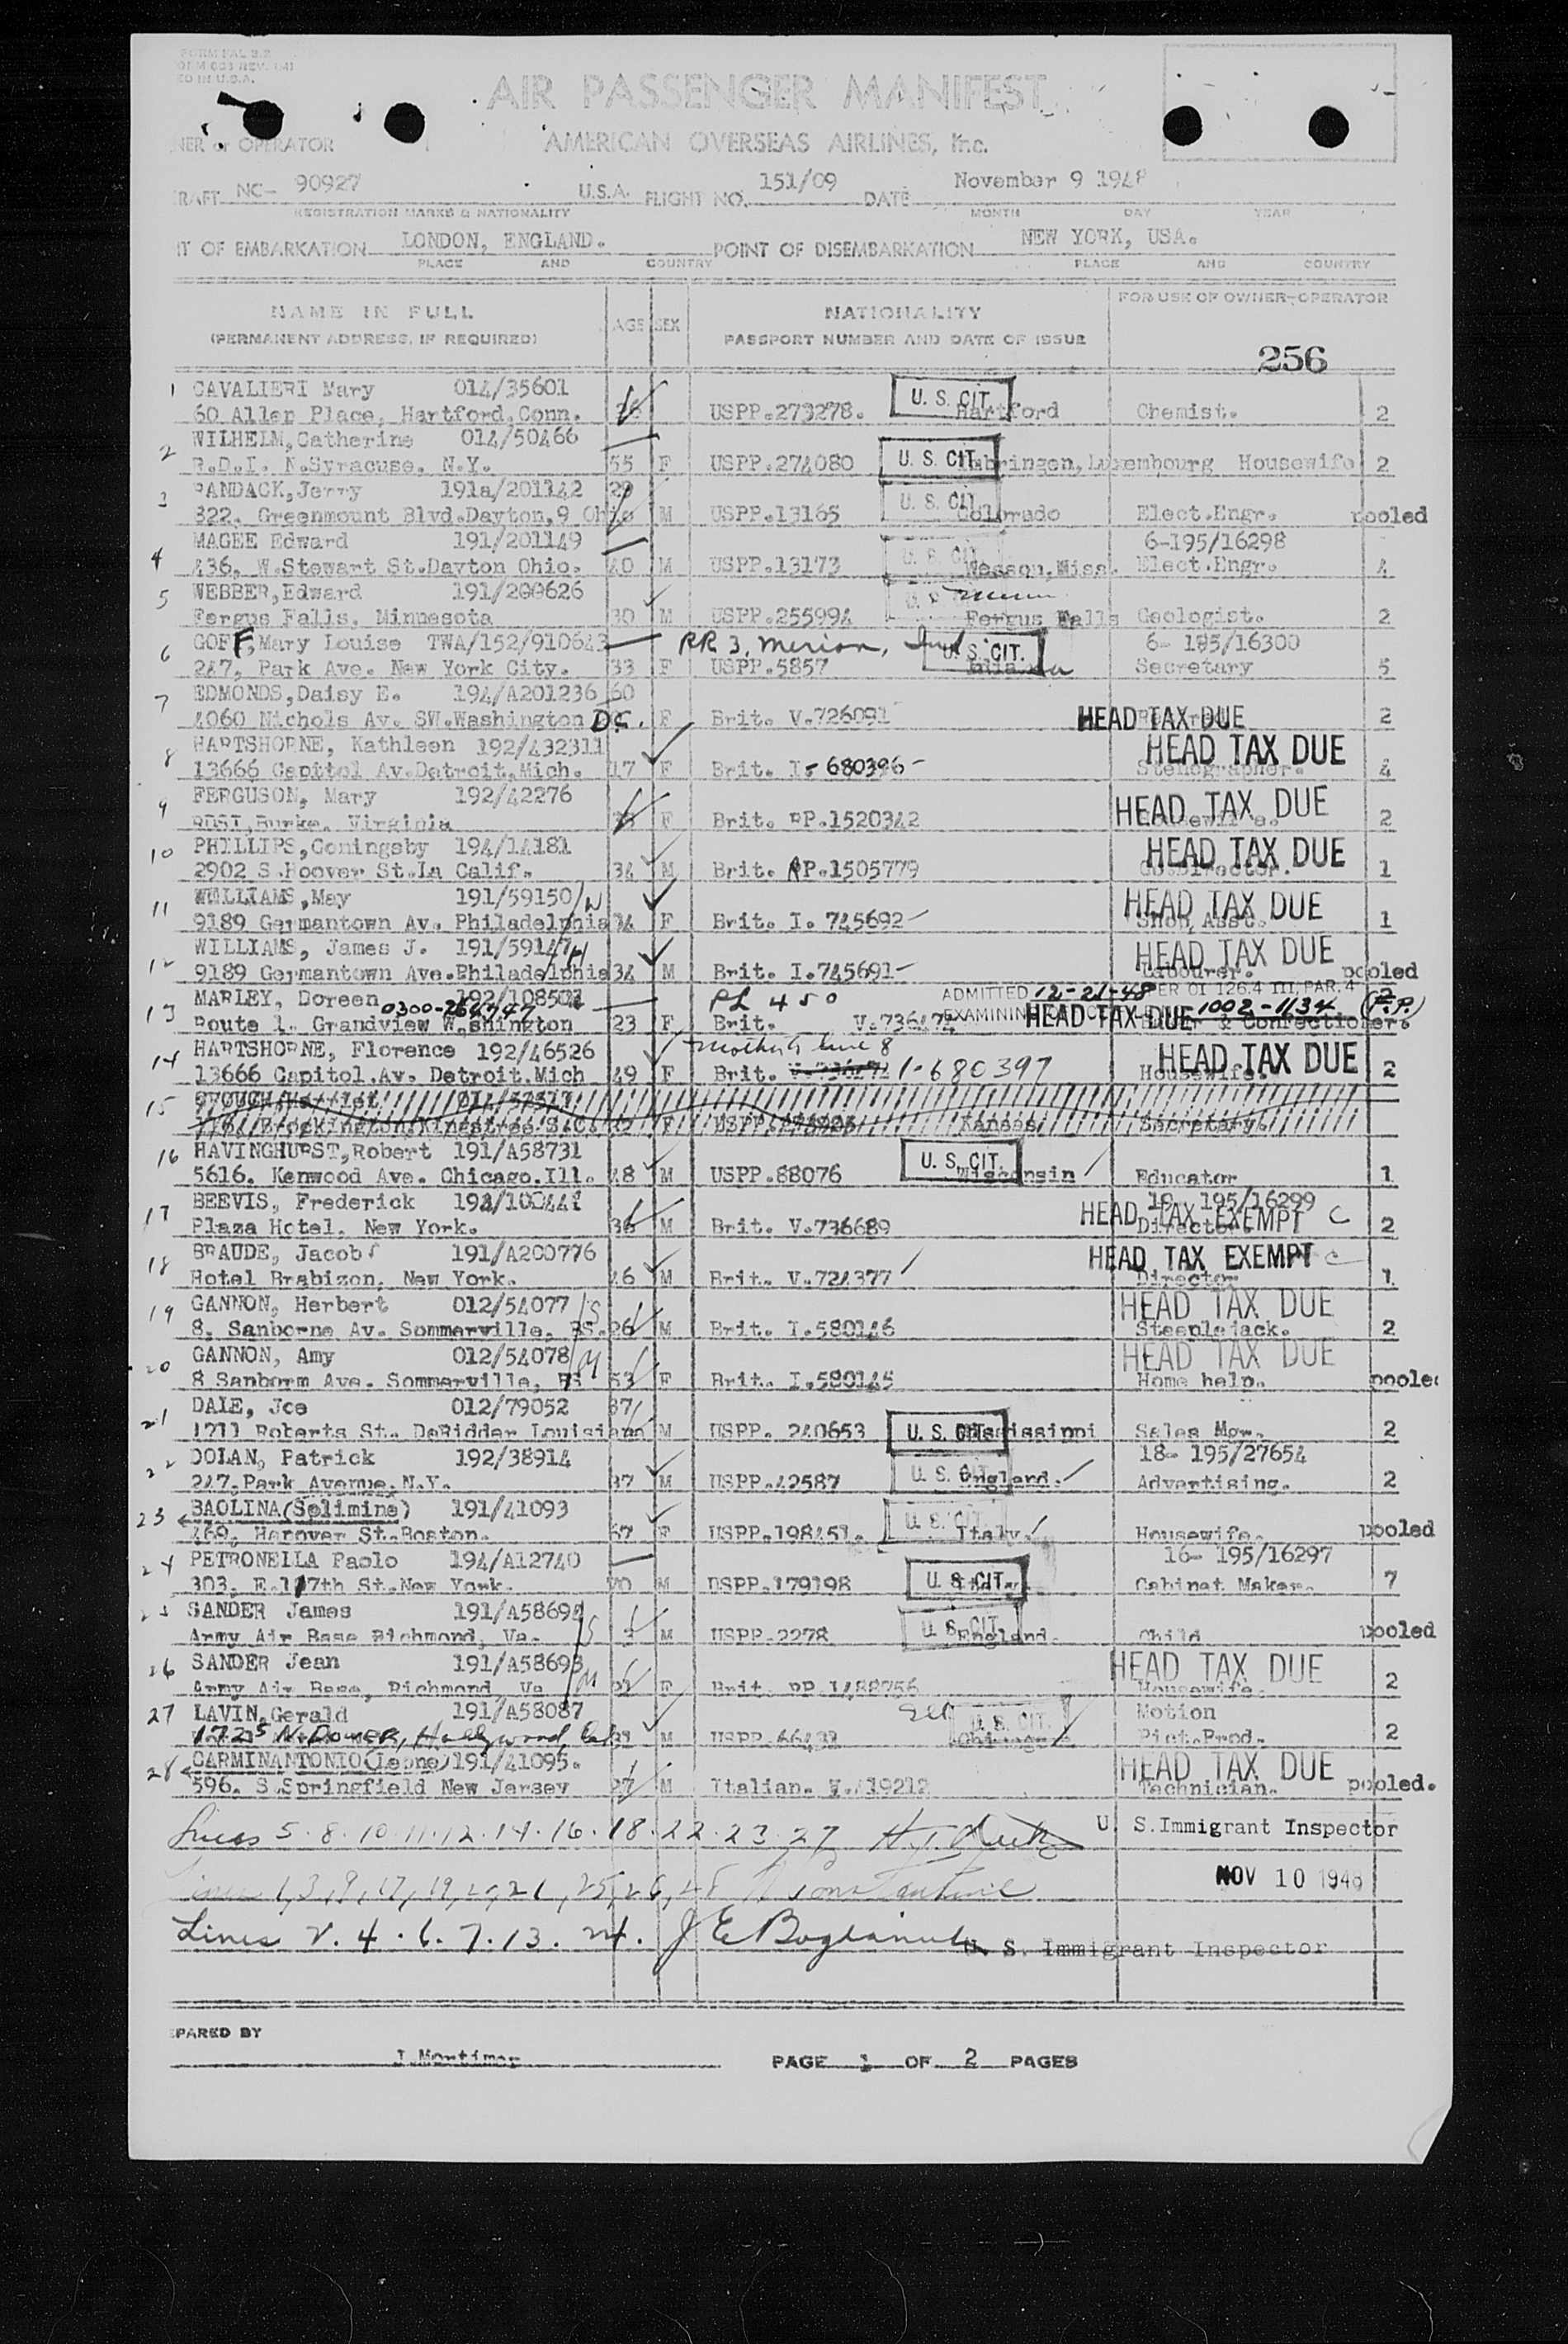 FORM PAL 3.2
AIR PASSENGER MANIFEST
NER or OPERATOR AMERICAN OVERSEAS AIRLINES, Inc.
RAFT NC- 90927 U.S.A. FLIGHT NO. 151/09 DATE November 9 1948
REGISTRATION MARKS & NATIONALITY MONTH DAY YEAR
T OF EMBARKATION LONDON, ENGLAND. POINT OF DISEMBARKATION NEW YORK, USA.
PLACE AND COUNTRY PLACE AND COUNTRY
NAME IN FULL AGE SEX NATIONALITY FOR USE OF OWNER-OPERATOR
(PERMANENT ADDRESS, IF REQUIRED) PASSPORT NUMBER AND DATE OF ISSUE
256
1 CAVALIERI Mary 014/35601 U. S. CIT.
60 Allen Place, Hartford, Conn. USPP.273278. Hartford Chemist. 2
2 WILHELM,Catherine 014/50466
R.D.I. N.Syracuse. N.Y. 55 F USPP.274080 U. S. CIT. Luxembourg Housewife 2
3 PANDACK,Jerry 191a/201142 29 U. S. CIT.
322. Greenmount Blvd.Dayton,9 Ohio M USPP.13165 Colorado Elect.Engr. pooled
4 MAGEE Edward 191/201149 U. S. CIT. 6-195/16298
436. W.Stewart St.Dayton Ohio. 40 M USPP.13173 Wesson,Miss. Elect.Engr. 4
5 WEBBER,Edward 191/200626
Fergus Falls, Minnesota 30 M USPP.255994 Fergus Falls Geologist. 2
6 GOFF,Mary Louise TWA/152/910643 RR 3, Merion, Ind U. S. CIT. 6- 195/16300
247, Park Ave. New York City. 33 F USPP.5857 Secretary 5
7 EDMONDS,Daisy E. 194/A201236 60
4060 Nichols Av. SW.Washington D.C. F Brit. V.726091 HEAD TAX DUE 2
8 HARTSHORNE, Kathleen 192/432311 HEAD TAX DUE
13666 Capitol Av.Detroit,Mich. 17 F Brit. I- 680396 - Stenographer. 4
9 FERGUSON, Mary 192/42276 HEAD TAX DUE
Burke, Virginia F Brit. PP.1520342 2
10 PHILLIPS,Coningsby 194/14181 HEAD TAX DUE
2902 S.Hoover St.La Calif. 34 M Brit. PP.1505779 1
11 WILLIAMS,May 191/59150/W HEAD TAX DUE
9189 Germantown Av. Philadelphia 34 F Brit. I. 745692 Shop Asst. 1
12 WILLIAMS, James J. 191/59147/H HEAD TAX DUE
9189 Germantown Ave.Philadelphia 34 M Brit. I.745691 Labourer. pooled
13 MARLEY, Doreen 192/108503 PL 450 ADMITTED 12-21-48 PER OI 126.4 III, PAR. 4 2
Route 1. Grandview Washington 23 F Brit. HEAD TAX DUE 1002-1134 (P.P.) & Confectioner.
14 HARTSHORNE, Florence 192/46526 mother of line 8 HEAD TAX DUE
13666 Capitol.Av. Detroit.Mich 49 F Brit. 1-680397 Housewife. 2
15
Kansas Secretary.
16 HAVINGHURST,Robert 191/A58731 U. S. CIT.
5616. Kenwood Ave. Chicago.Ill. 48 M USPP.88076 Wisconsin Educator 1
17 BEEVIS, Frederick 18- 195/16299
Plaza Hotel. New York. 36 M Brit. V.736689 HEAD TAX EXEMPT C Director 2
18 BRAUDE, Jacob 191/A200776 HEAD TAX EXEMPT C
Hotel Brabizon, New York. 46 M Brit. V.724377 Director 1
19 GANNON, Herbert 012/54077/S HEAD TAX DUE
8, Sanborne Av. Sommerville, 26 M Brit. I.580146 Steeplejack. 2
20 GANNON, Amy 012/54078/M HEAD TAX DUE
8 Sanborm Ave. Sommerville, 53 F Brit. I.580145 Home help. pooled
21 DALE, Joe 012/79052 37
1711 Roberts St. DeRidder Louisiana M USPP. 240653 U. S. CIT. Mississippi Sales Mgr. 2
22 DOLAN, Patrick 192/38914 U. S. CIT. 18- 195/27654
247.Park Avenue.N.Y. 37 M USPP.42587 England. Advertising. 2
23 BAOLINA(Solimine) 191/41093 U. S. CIT.
469. Hanover St.Boston. 67 F USPP.198451. Italy. Housewife. pooled
24 PETRONELLA Paolo 194/A12740 16- 195/16297
303. E.117th St.New York. 70 M USPP.179198 U. S. CIT. Cabinet Maker. 7
25 SANDER James 191/A58694/S U. S. CIT.
Army Air Base Richmond, Va. M USPP.2278 England. Child pooled
26 SANDER Jean 191/A58693/M HEAD TAX DUE
Army Air Base, Richmond, Va F Brit. PP.1488756 Housewife. 2
27 LAVIN,Gerald 191/A58087 U. S. CIT. Motion
1725 N. Hollywood, Cal M Chicago Pict.Prod. 2
28 CARMINANTONIO(Leone)191/41095. HEAD TAX DUE
596. S.Springfield New Jersey 27 M Italian. Technician. pooled.
Lines 5.8.10.11.12.14.16.18.22.23.27 U. S.Immigrant Inspector
Lines 1,3,9,17,19,20,21,25,26,28 NOV 10 1948
Lines 2.4.6.7.13.24. U. S. Immigrant Inspector
PARED BY
J.Mortimer PAGE 1 OF 2 PAGES